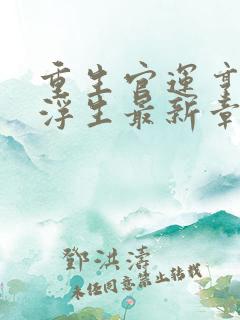 重生官运亨
浮生最新章
鄧洪濤
未经同意禁止转载